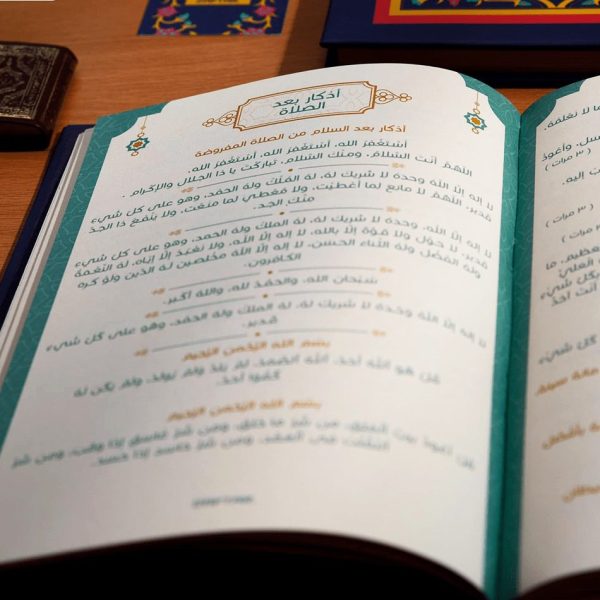 أذكار بعد
الصلاة
أذكار بعد السلام من الصلاة المفروضة
أستغفر الله، أستغفر الله، أستغفر الله.
اللهم أنت السلام، ومنك السلام، تباركت يا ذا الجلال والإكرام.
لا إله إلا الله وحده لا شريك له، له الملك وله الحمد، وهو على كل شيء
قدير، اللهم لا مانع لما أعطيت، ولا معطي لما منعت، ولا ينفع ذا الجد
منك الجد.
لا إله إلا الله، وحده لا شريك له، له الملك وله الحمد، وهو على كل شيء
قدير، لا حول ولا قوة إلا بالله، لا إله إلا الله، ولا نعبد إلا إياه، له النعمة
وله الفضل وله الثناء الحسن، لا إله إلا الله مخلصين له الدين ولو كره
الكافرون.
سبحان الله، والحمد لله، والله أكبر.
لا إله إلا الله وحده لا شريك له، له الملك وله الحمد، وهو على كل شيء
قدير.
بسم الله الرحمن الرحيم
قل هو الله أحد، الله الصمد، لم يلد ولم يولد، ولم يكن له
كفوا أحد.
بسم الله الرحمن الرحيم
قل أعوذ برب الفلق، من شر ما خلق، ومن شر غاسق إذا وقب، ومن شر
النفاثات في العقد، ومن شر حاسد إذا حسد.
ما لا نعلمه.
وأعوذ
( ٣ مرات )
إليه.
( ٣ مرات )
كل شيء